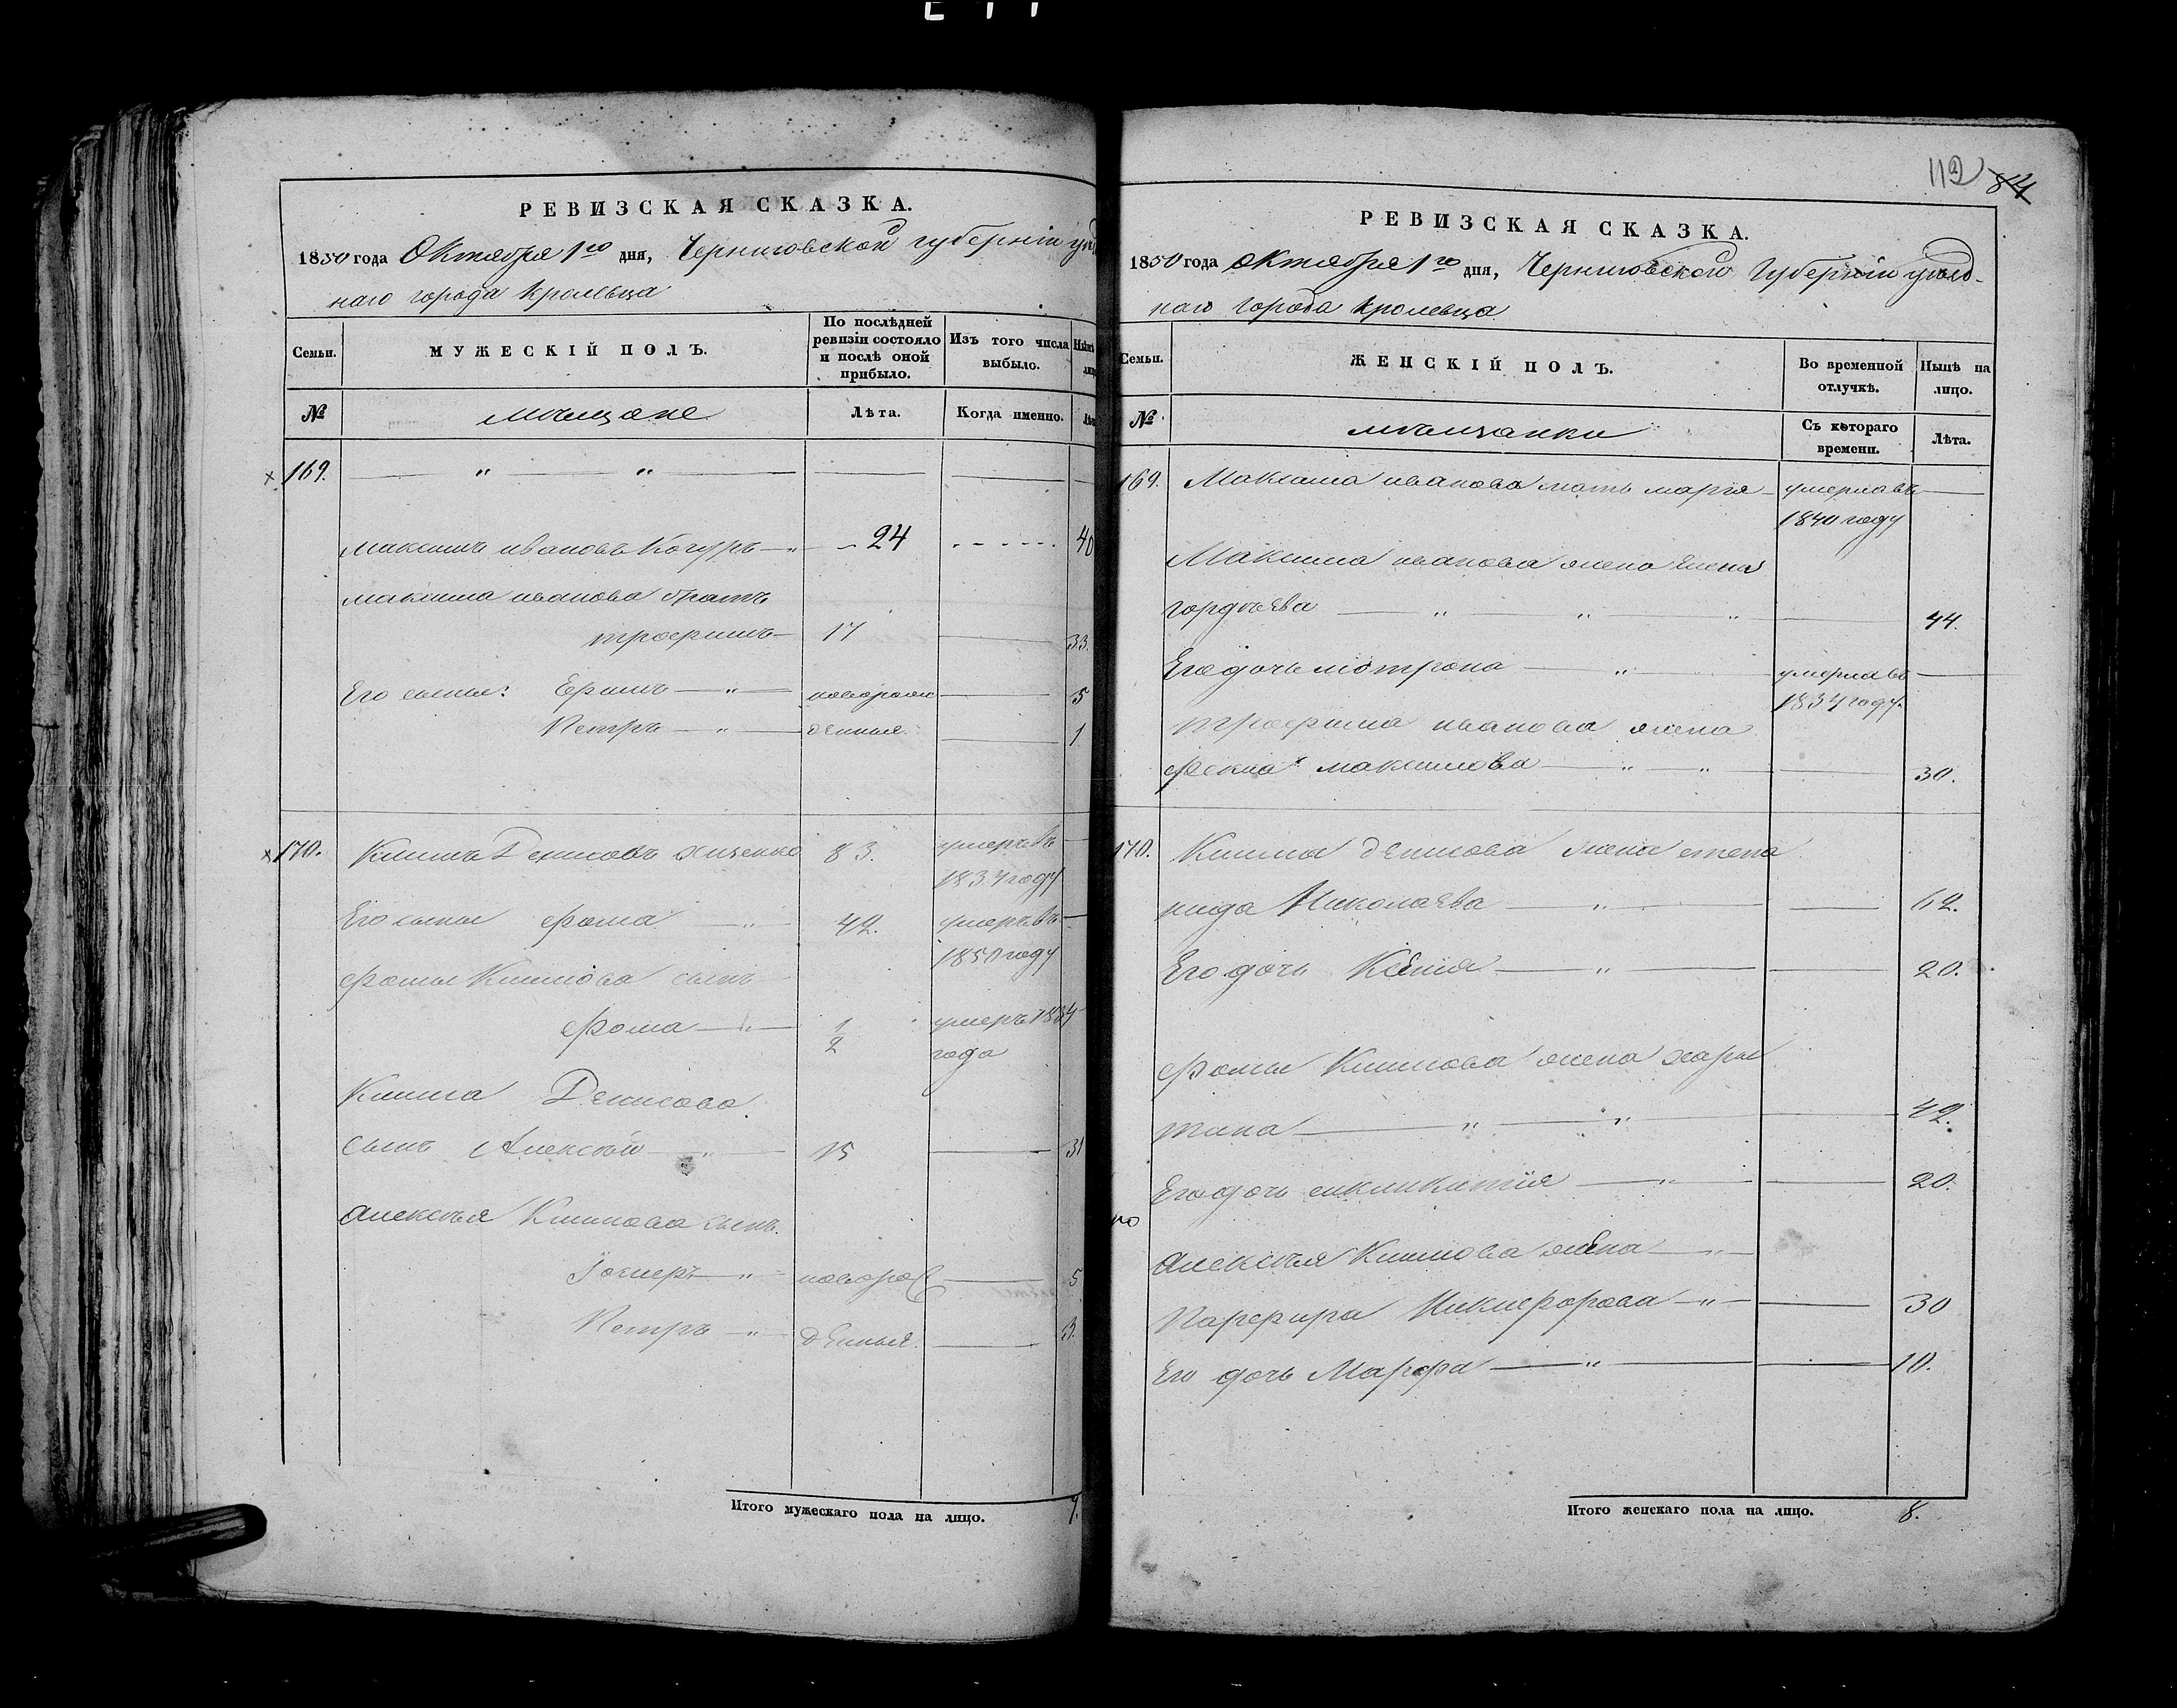 РЕВИЗСКАЯ СКАЗКА.
1850 года Октября 1го дня, Черниговской губерніи уѣзд
наго города Кролевца
Семьи.
МУЖЕСКІЙ ПОЛЪ.
По послѣдней
ревизіи состояло
и послѣ оной
прибыло.
Изъ того числа
выбыло.
№
мѣщане
Лѣта.
Когда именно.
169.
Максимъ Ивановъ Кочуръ 24 40
Максима Иванова братъ
Трофимъ 17 33.
Его сынья: Ефимъ новорож 5
Петръ денныя. 1
170. Климъ Денисовъ 83. умеръ въ
1834 году
Его сынъ Фома 42. умеръ въ
1850 году
Фомы Климова сынъ
Фома 1/2 умеръ 1834
года
Клима Денисова
сынъ Алексѣй 15 31
Алексѣя Климова сынъ.
новорож 5
Петръ денныя. 3.
Итого мужескаго пола на лицо. 7.
112 84
РЕВИЗСКАЯ СКАЗКА.
1850 года Октября 1го дня, Черниговской Губерніи уѣзд-
наго города Кролевца
Семьи.
ЖЕНСКІЙ ПОЛЪ.
Во временной
отлучкѣ.
Нынѣ на
лицо.
№
мѣщанки
Съ котораго
времени.
Лѣта.
169. Максима Иванова мать Марья умерла въ
1840 году
Максима Иванова жена Елена
Гордѣева 44.
Его дочь Мотрона умерла въ
1834 году.
Трофима Иванова жена
Фекла Максимова 30.
170. Клима Денисова жена Степа
нида Николаева 62.
Его дочь Ксенія 20.
Фомы Климова жена Хари
тина 42.
Его дочь 20.
Алексѣя Климова жена
Парфира Никифорова 30
Его дочь Марфа 10.
Итого женскаго пола на лицо. 8.